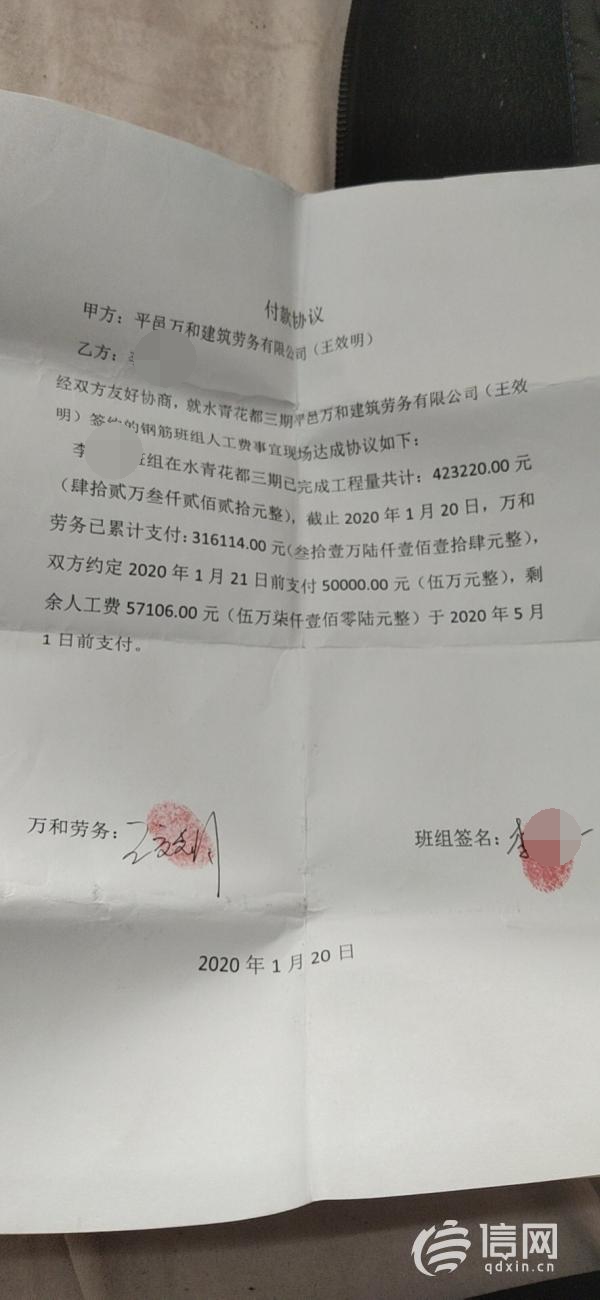 付款协议
甲方：平邑万和建筑劳务有限公司（王效明）
乙方：
经双方友好协商，就水青花都三期平邑万和建筑劳务有限公司（王效
明）签约的钢筋班组人工费事宜现场达成协议如下：
李 班组在水青花都三期已完成工程量共计：423220.00 元
（肆拾贰万叁仟贰佰贰拾元整），截止 2020 年 1 月 20 日，万和
劳务已累计支付：316114.00 元（叁拾壹万陆仟壹佰壹拾肆元整），
双方约定 2020 年 1 月 21 日前支付 50000.00 元（伍万元整），剩
余人工费 57106.00 元（伍万柒仟壹佰零陆元整）于 2020 年 5 月
1 日前支付。
万和劳务：王效明
班组签名：李
2020 年 1 月 20 日
信网
qdxin.cn